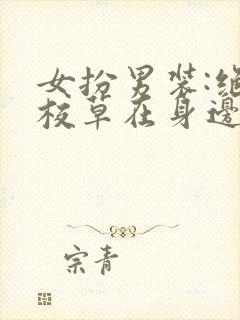 女扮男装:绝
校草在身邊
宗青